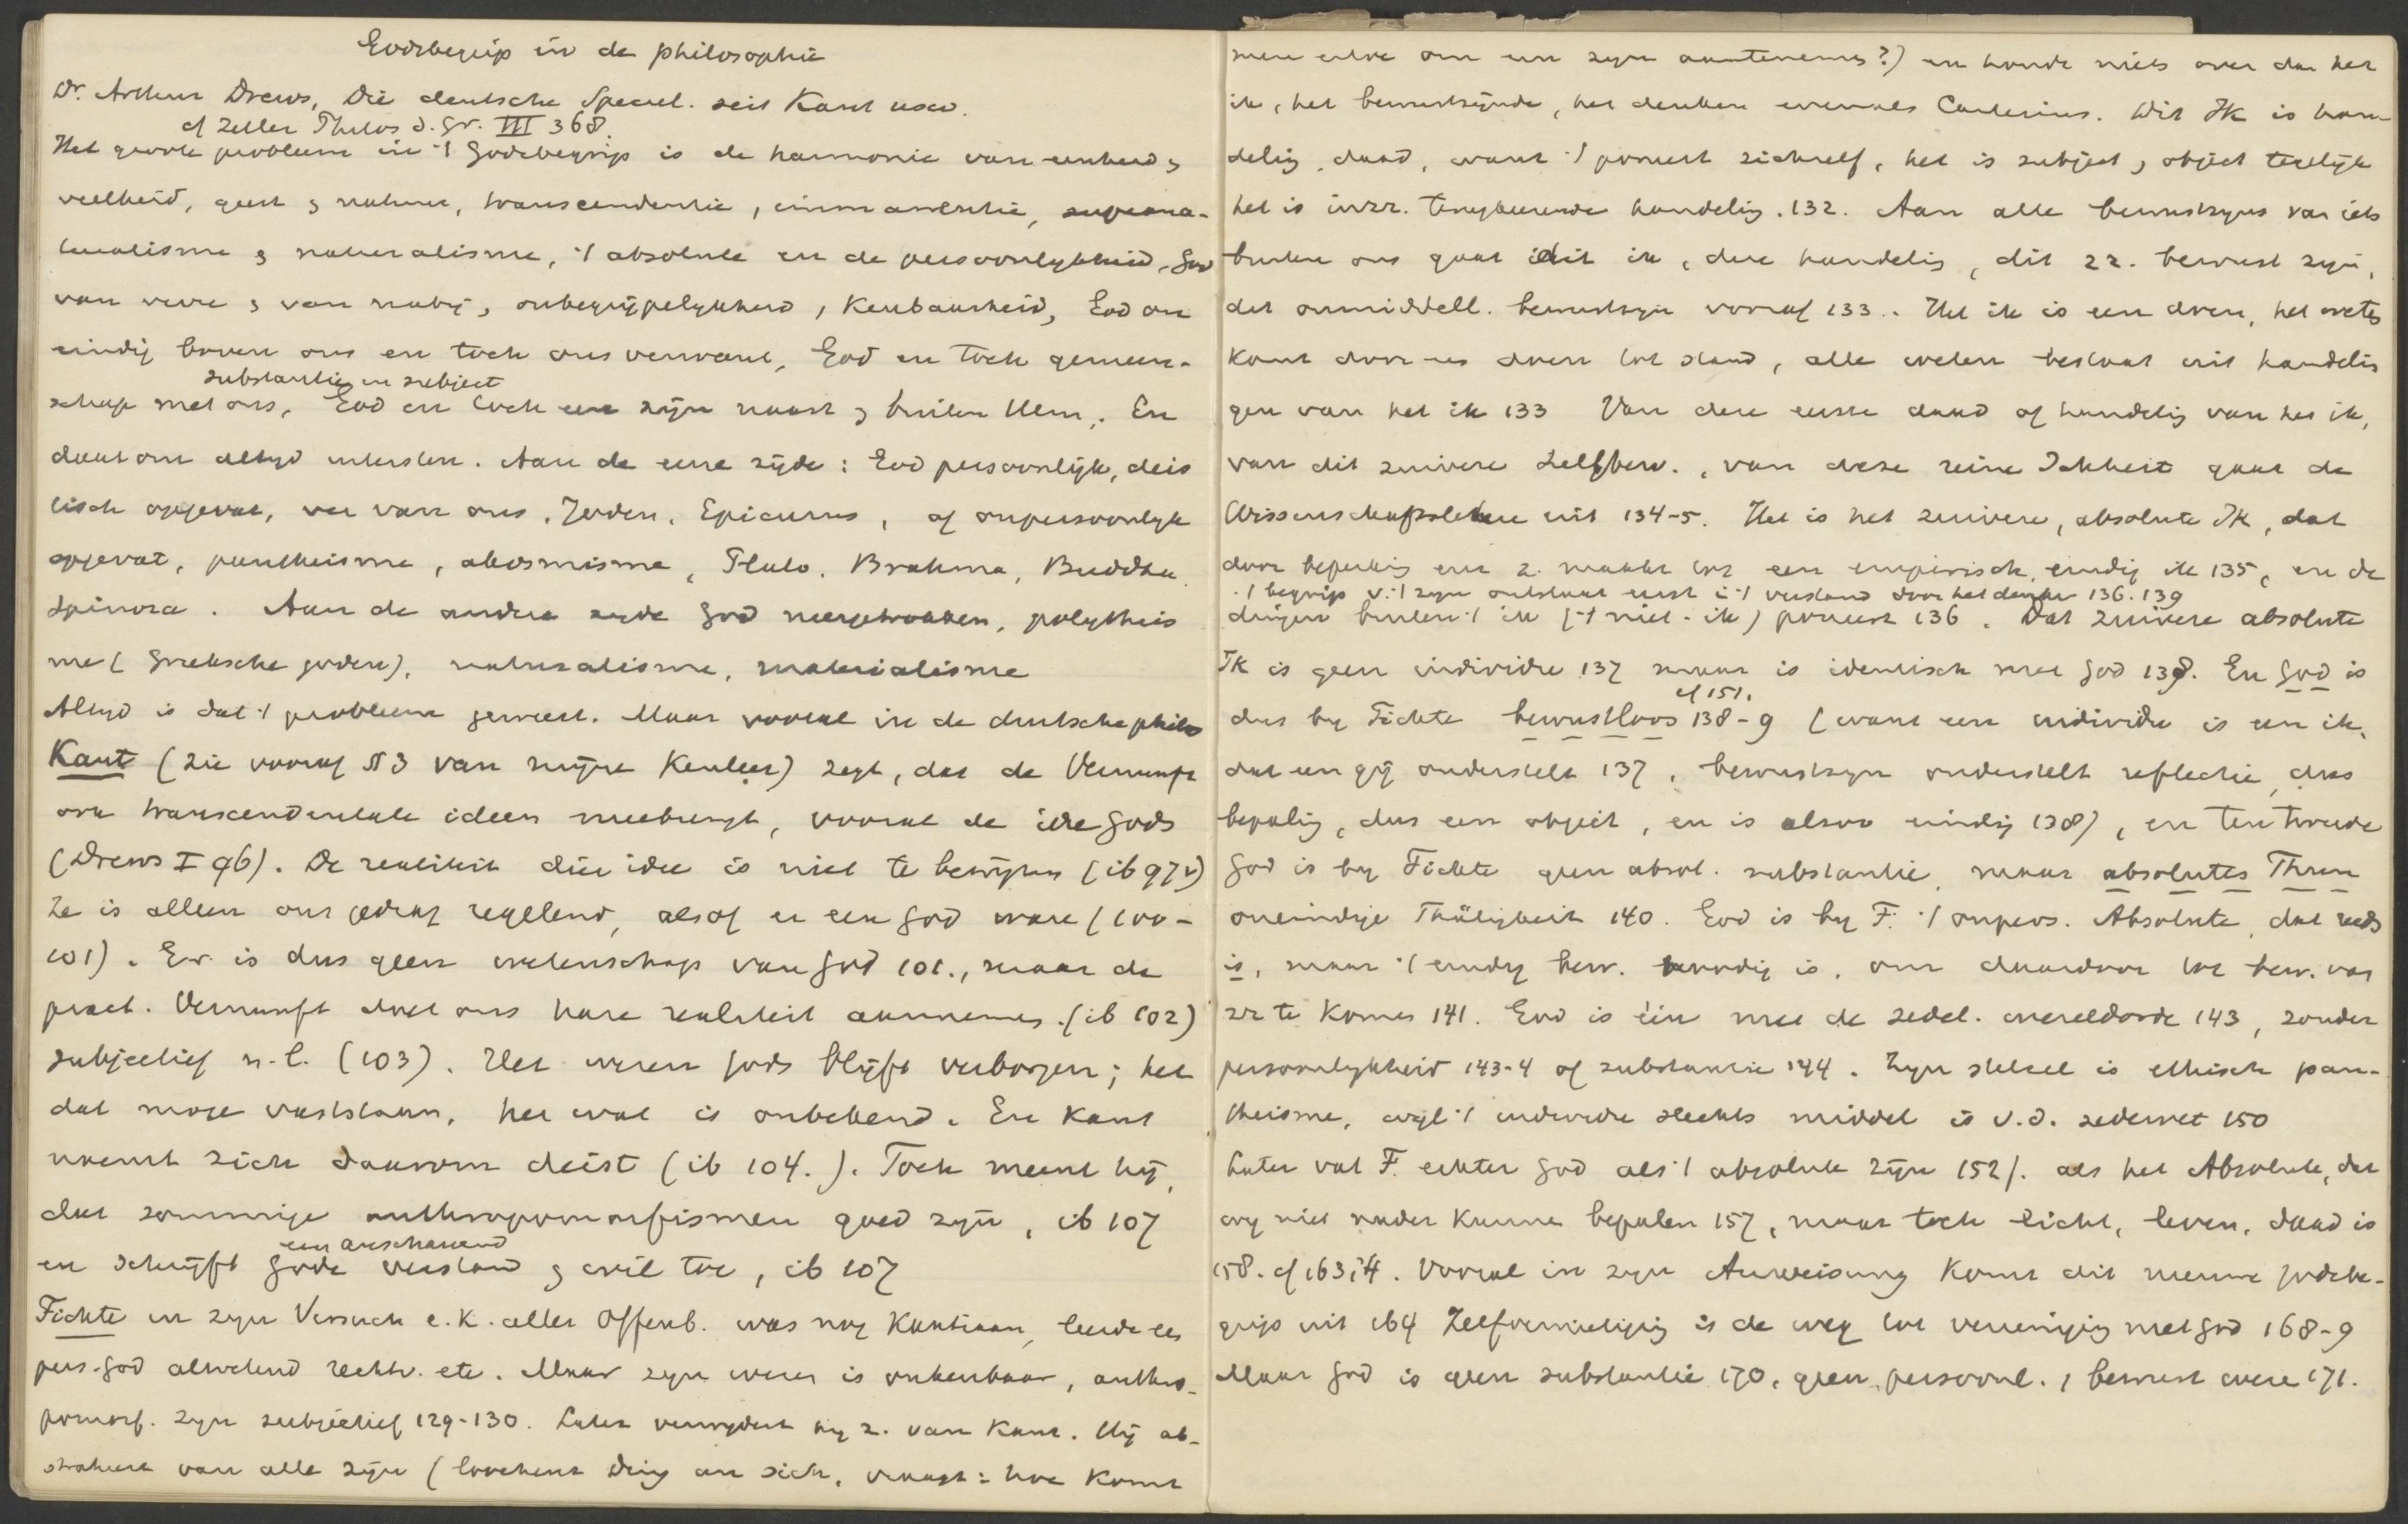 Godsbegrip in de philosophie
Dr. Arthur Drews, Die deutsche Specul. seit Kant usw.
cf Zeller Philos d. Gr. III 368.
Het groote probleem in 't Godsbegrip is de harmonie van eenheid &
veelheid, geest & natuur, transcendentie, immanentie, suprana-
turalisme & naturalisme, 't absolute en de persoonlykheid, God
van verre & van naby, onbegrijpelykheid, kenbaarheid, God on
eindig boven ons en toch ons verwant, God en toch gemeen-
substantie en subject
schap met ons, God en toch een zijn naast & buiten Hem. En
daarom altyd uitersten. Aan de eene zijde: God persoonlijk, deis
tisch opgevat, ver van ons, Joden, Epicurus, of onpersoonlyk
opgevat, pantheisme, akosmisme, Plato, Brahma, Buddha
Spinoza. Aan de andere zyde God neergetrokken, polytheis
me (Grieksche goden), naturalisme, materialisme
Altyd is dat 't probleem geweest. Maar vooral in de duitsche philos
Kant (zie vooraf § 3 van mijne Kenleer) zegt, dat de Vernunft
ons transcendentale ideen meebrengt, vooral de idee Gods
(Drews I 96). De realiteit dier idee is niet te bewijzen (ib 97v)
Ze is alleen ons gedrag regelend, alsof er een God ware (100-
101). Er is dus geen wetenschap van God 101., maar de
pract. Vernunft doet ons hare realiteit aannemen. (ib 102)
subjectief n.l. (103). Het wezen Gods blijft verborgen; het
dat moge vaststaan, het wat is onbekend. En Kant
noemt zich daarom deist (ib 104.). Toch meent hij,
dat sommige anthropomorfismen goed zyn, ib 107
een anschauend
en schrijft Gode verstand & wil toe, ib 107
Fichte in zyn Versuch e. K. aller Offenb. was nog Kantiaan, leerde een
pers. God alwetend rechtv. etc. Maar zyn wezen is onkenbaar, anthro-
pomorf. zyn subjectief 129-130. Later verwydert hy z. van Kant. Hij ab-
straheert van alle zijn (loochent Ding an sich, vraagt: hoe komt
men erdoe om een zyn aantenemen?) en houdt niets over dan het
ik, het bewustzijnde, het denken evenals Cartesius. Dit IK is han-
delig, daad, want 't poneert zichzelf, het is subject & object tegelijk
het is in zz. terugkeerende handelig. 132. Aan alle bewustzyns van iets
buiten ons gaat dit ik, deze handelig, dit zz. bewust zyn,
dit onmiddell. bewustzyn vooraf 133.. Het ik is een doen, het weten
komt door een doen tot stand, alle weten bestaat uit handelin
gen van het ik 133 Van deze eerste daad of handelig van het ik,
van dit zuivere zelfbew., van deze reine Ichheit gaat de
Wissenschaftslehre uit 134-5. Het is het zuivere, absolute IK, dat
door bepaling een z. maakt tot een empirisch, eindig ik 135, en de
't begrip v. 't zyn ontstaat eerst in 't verstand door het denken 136. 139
dingen buiten 't ik ('t niet-ik) poneert 136. Dat zuivere absolute
IK is geen individu 137 maar is identisch met God 138. En God is
cf 151.
dus by Fichte bewustloos 138-9 (want een individu is een ik,
dat een gij onderstelt 137, bewustzyn onderstelt reflectie dus
bepaling, dus een object, en is alzoo eindig 138), en ten tweede
God is by Fichte geen absol. substantie, maar absolutes Thun
oneindige Thätigkeit 140. God is by F. 't onpers. Absolute, dat reeds
is, maar 't eindig bew. noodig is, om daardoor tot bew. van
zz te komen 141. God is één met de zedel. wereldorde 143, zonder
persoonlykheid 143-4 of substantie 144. Zyn stelsel is ethisch pan-
theisme, wyl 't individu slechts middel is v.d. zedewet 150
Later vat F. echter God als 't absolute zijn 152/. als het Absolute, dat
wy niet nader kunnen bepalen 157, maar toch licht, leven, daad is
158. cf 163;4. Vooral in zyn Anweisung komt dit nieuwe Godsbe-
grip uit 164 Zelfvernietiging is de weg tot vereeniging met God 168-9
Maar God is geen substantie 170, geen persoonl., bewust wezen 171.